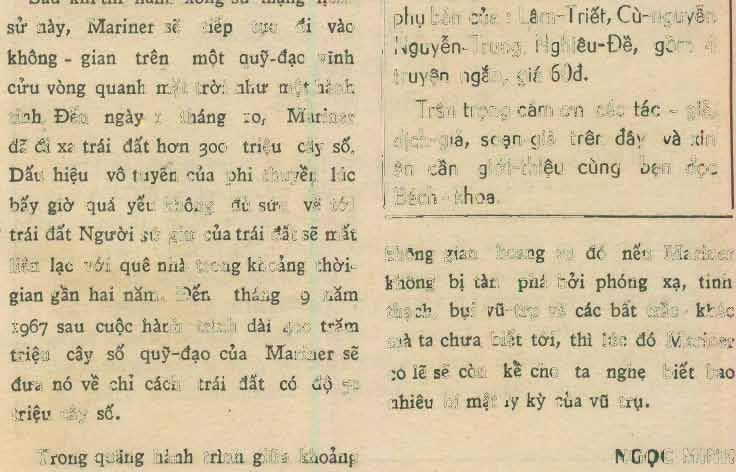 Sau khi thi hành xong sứ mạng lịch
sử này, Mariner sẽ tiếp tục đi vào
không - gian trên một quỹ-đạo vĩnh
cửu vòng quanh mặt trời như một hành
tinh. Đến ngày 1 tháng 10, Mariner
đã đi xa trái đất hơn 300 triệu cây số.
Dấu hiệu vô tuyến của phi thuyền lúc
bấy giờ quá yếu không đủ sức về tới
trái đất Người sứ giả của trái đất sẽ mất
liên lạc với quê nhà trong khoảng thời-
gian gần hai năm. Đến tháng 9 năm
1967 sau cuộc hành trình dài 400 trăm
triệu cây số quỹ-đạo của Mariner sẽ
đưa nó về chỉ cách trái đất có độ
triệu cây số.
Trong quãng hành trình giữa khoảng
phụ bản của : Lâm-Triết, Cù-nguyễn
Nguyễn-Trung, Nghiêu-Đề, gồm 4
truyện ngắn, giá 60đ.
Trân trọng cảm ơn các tác - giả,
dịch-giả, soạn-giả trên đây và xin
ân cần giới-thiệu cùng bạn đọc
Bách - khoa.
không gian hoang vu đó nếu Mariner
không bị tàn phá bởi phóng xạ, tinh
thạch, bụi vũ-trụ và các bất trắc khác
mà ta chưa biết tới, thì lúc đó Mariner
có lẽ sẽ còn kể cho ta nghe biết bao
nhiêu bí mật ly kỳ của vũ trụ.
NGỌC MINH